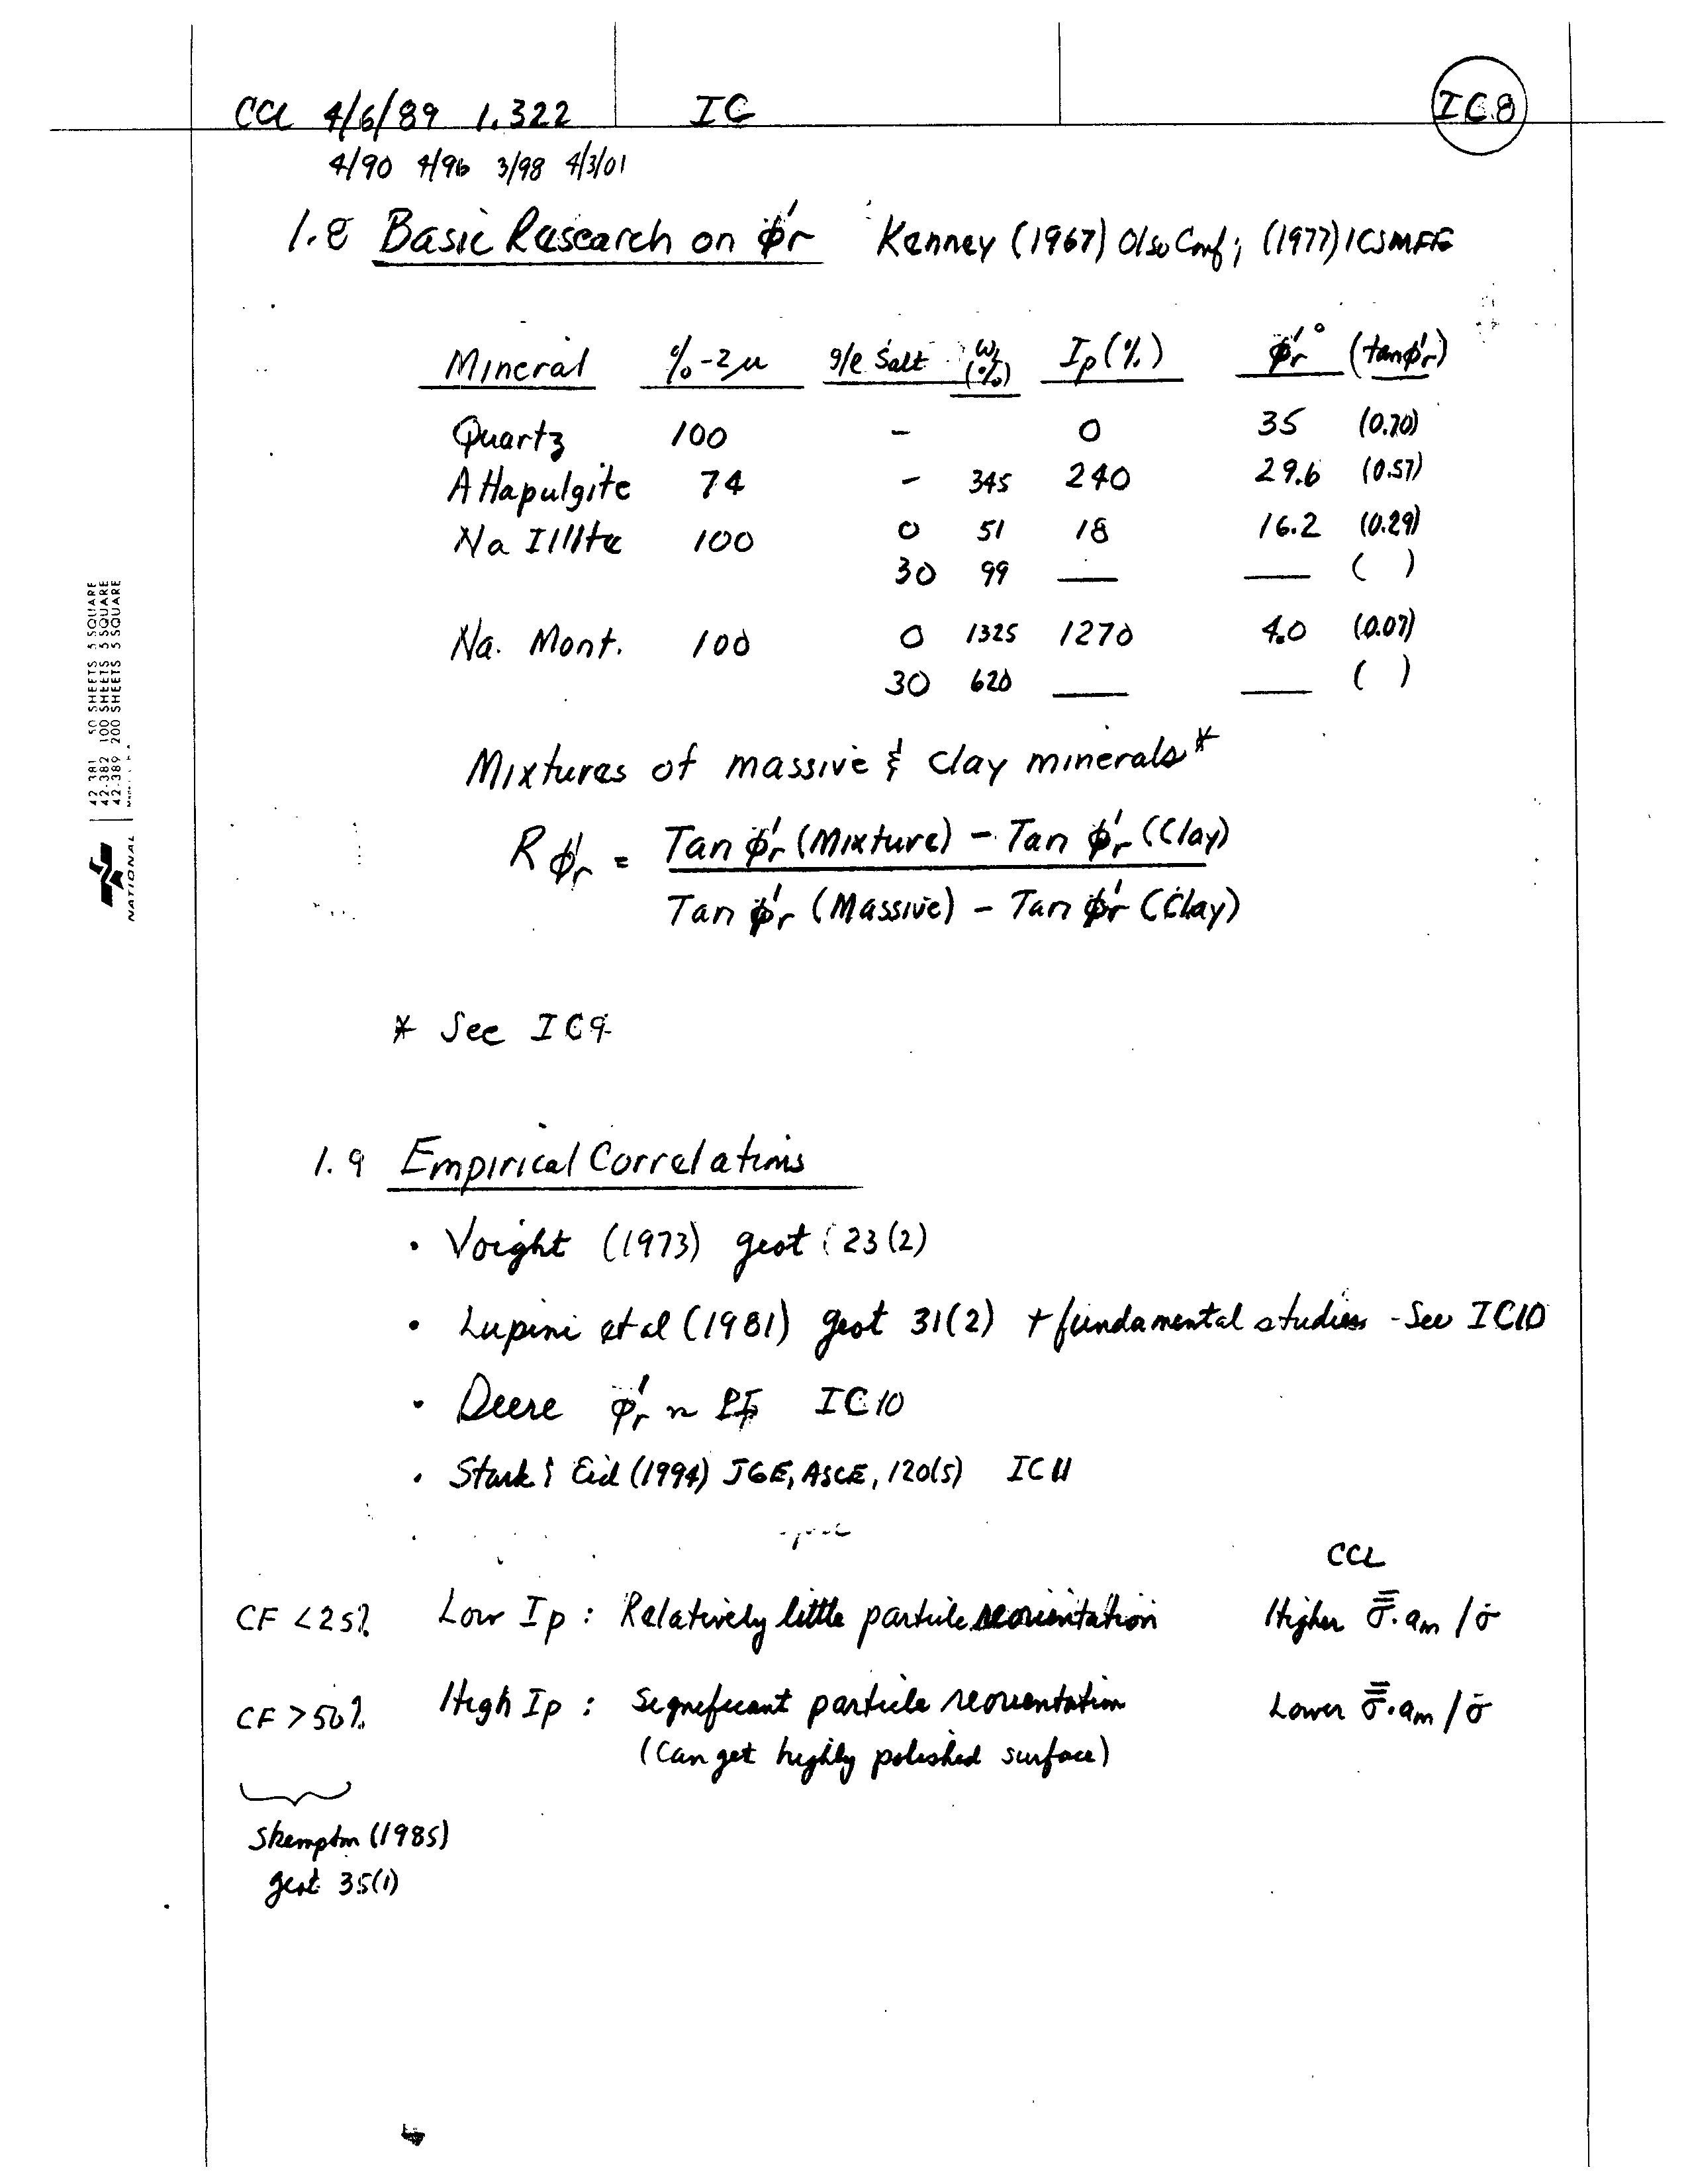 CCL 4/6/89 1.322 IC IC8
4/90 4/96 3/98 4/3/01
1.8 Basic Research on φ'r Kenney (1967) Olso Conf; (1977) ICSMFE
Mineral %-2μ g/l Salt wL (%) Ip (%) φ'r° (tanφ'r)
Quartz 100 - 0 35 (0.70)
Attapulgite 74 - 345 240 29.6 (0.57)
Na Illite 100 0 51 18 16.2 (0.29)
30 99 — — ( )
Na. Mont. 100 0 1325 1270 4.0 (0.07)
30 620 — — ( )
Mixtures of massive & clay minerals*
R φ'r = Tan φ'r (Mixture) - Tan φ'r (Clay)
Tan φ'r (Massive) - Tan φ'r (Clay)
* See IC9
1.9 Empirical Correlations
• Voight (1973) geot 23(2)
• Lupini et al (1981) geot 31(2) + fundamental studies - See IC10
• Deere φ'r ~ IC10
• Stark & Eid (1994) JGE, ASCE, 120(5) IC11
CCL
CF <25% Low Ip : Relatively little particle reorientation Higher σ̿·am / σ̄
CF >50% High Ip : Significant particle reorientation Lower σ̿·am / σ̄
(Can get highly polished surface)
Skempton (1985)
geot 35(1)
42-381 50 SHEETS 5 SQUARE
42-382 100 SHEETS 5 SQUARE
42-389 200 SHEETS 5 SQUARE
NATIONAL